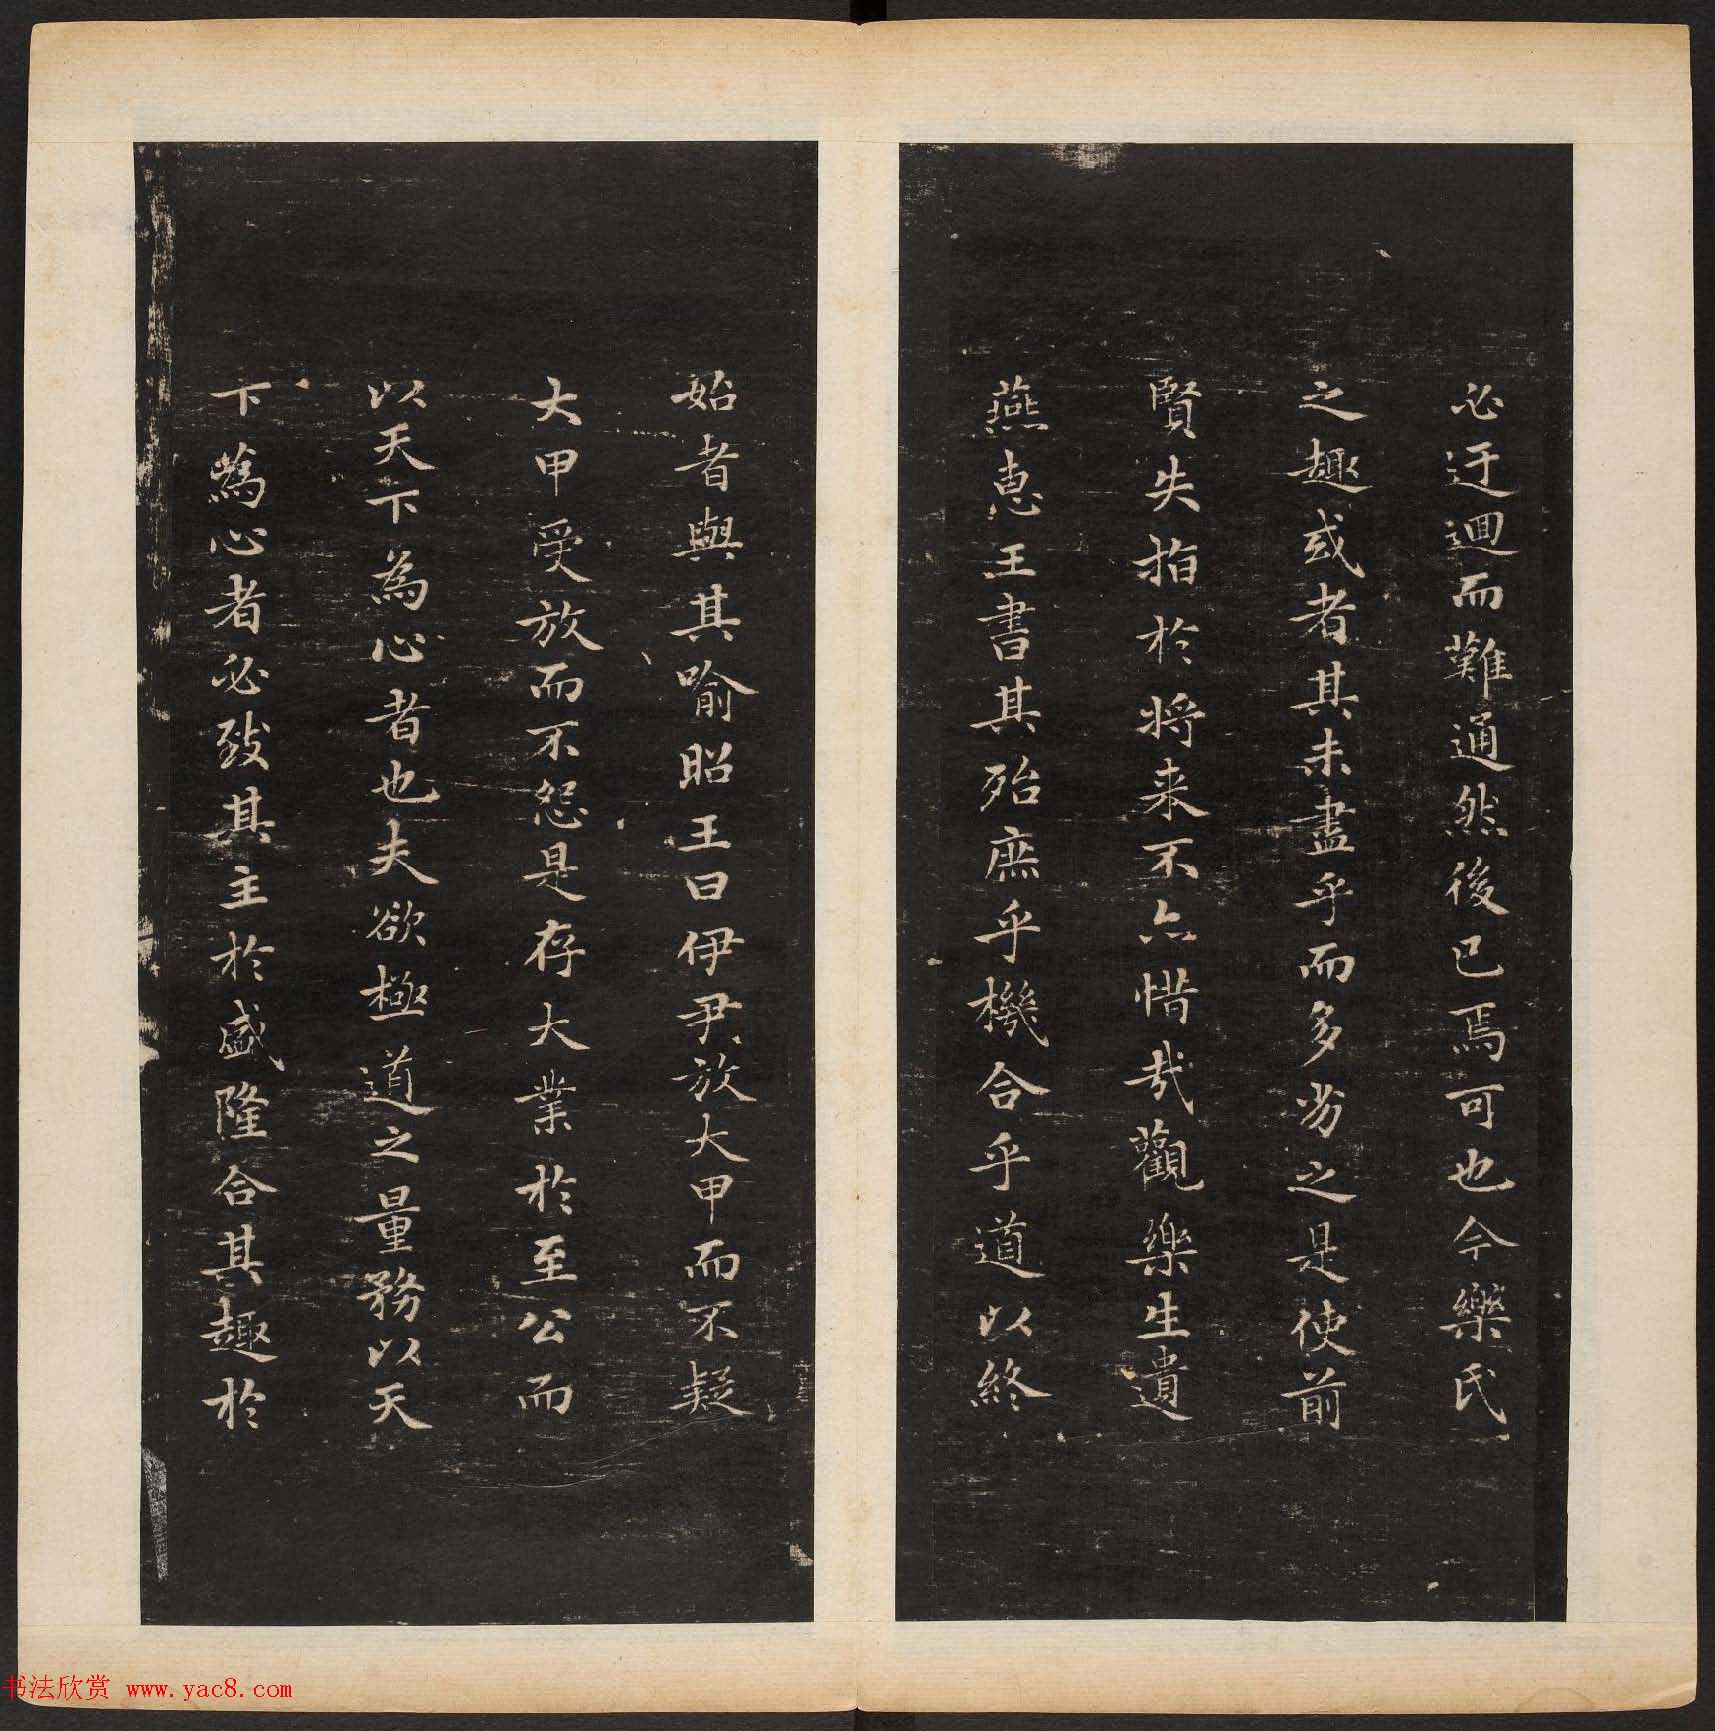 必迂迴而難通然後已焉可也今樂氏
之趣或者其未盡乎而多劣之是使前
賢失指於将来不亦惜哉觀樂生遺
燕惠王書其殆庶乎機合乎道以終
始者與其喻昭王曰伊尹放大甲而不疑
大甲受放而不怨是存大業於至公而
以天下為心者也夫欲極道之量務以天
下為心者必致其主於盛隆合其趣於
书法欣赏 www.yac8.com